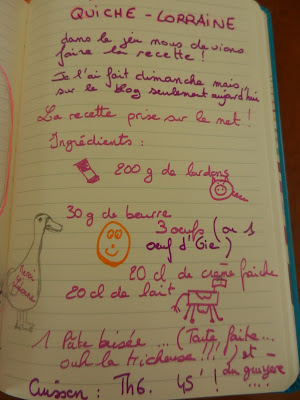 QUICHE - LORRAINE
dans le jeu nous devions
faire la recette !
Je l'ai fait dimanche mais,
sur le blog seulement aujourd'hui
La recette prise sur le net !
Ingrédients :
200 g de lardons
30 g de beurre
3 oeufs (ou 1
oeuf d'Oie)
20 cl de crème fraîche
20 cl de lait
1 Pâte brisée ... (Toute faite ...
ouh la tricheuse !!!) et
du gruyère
....
Cuisson : Th6. 45' !